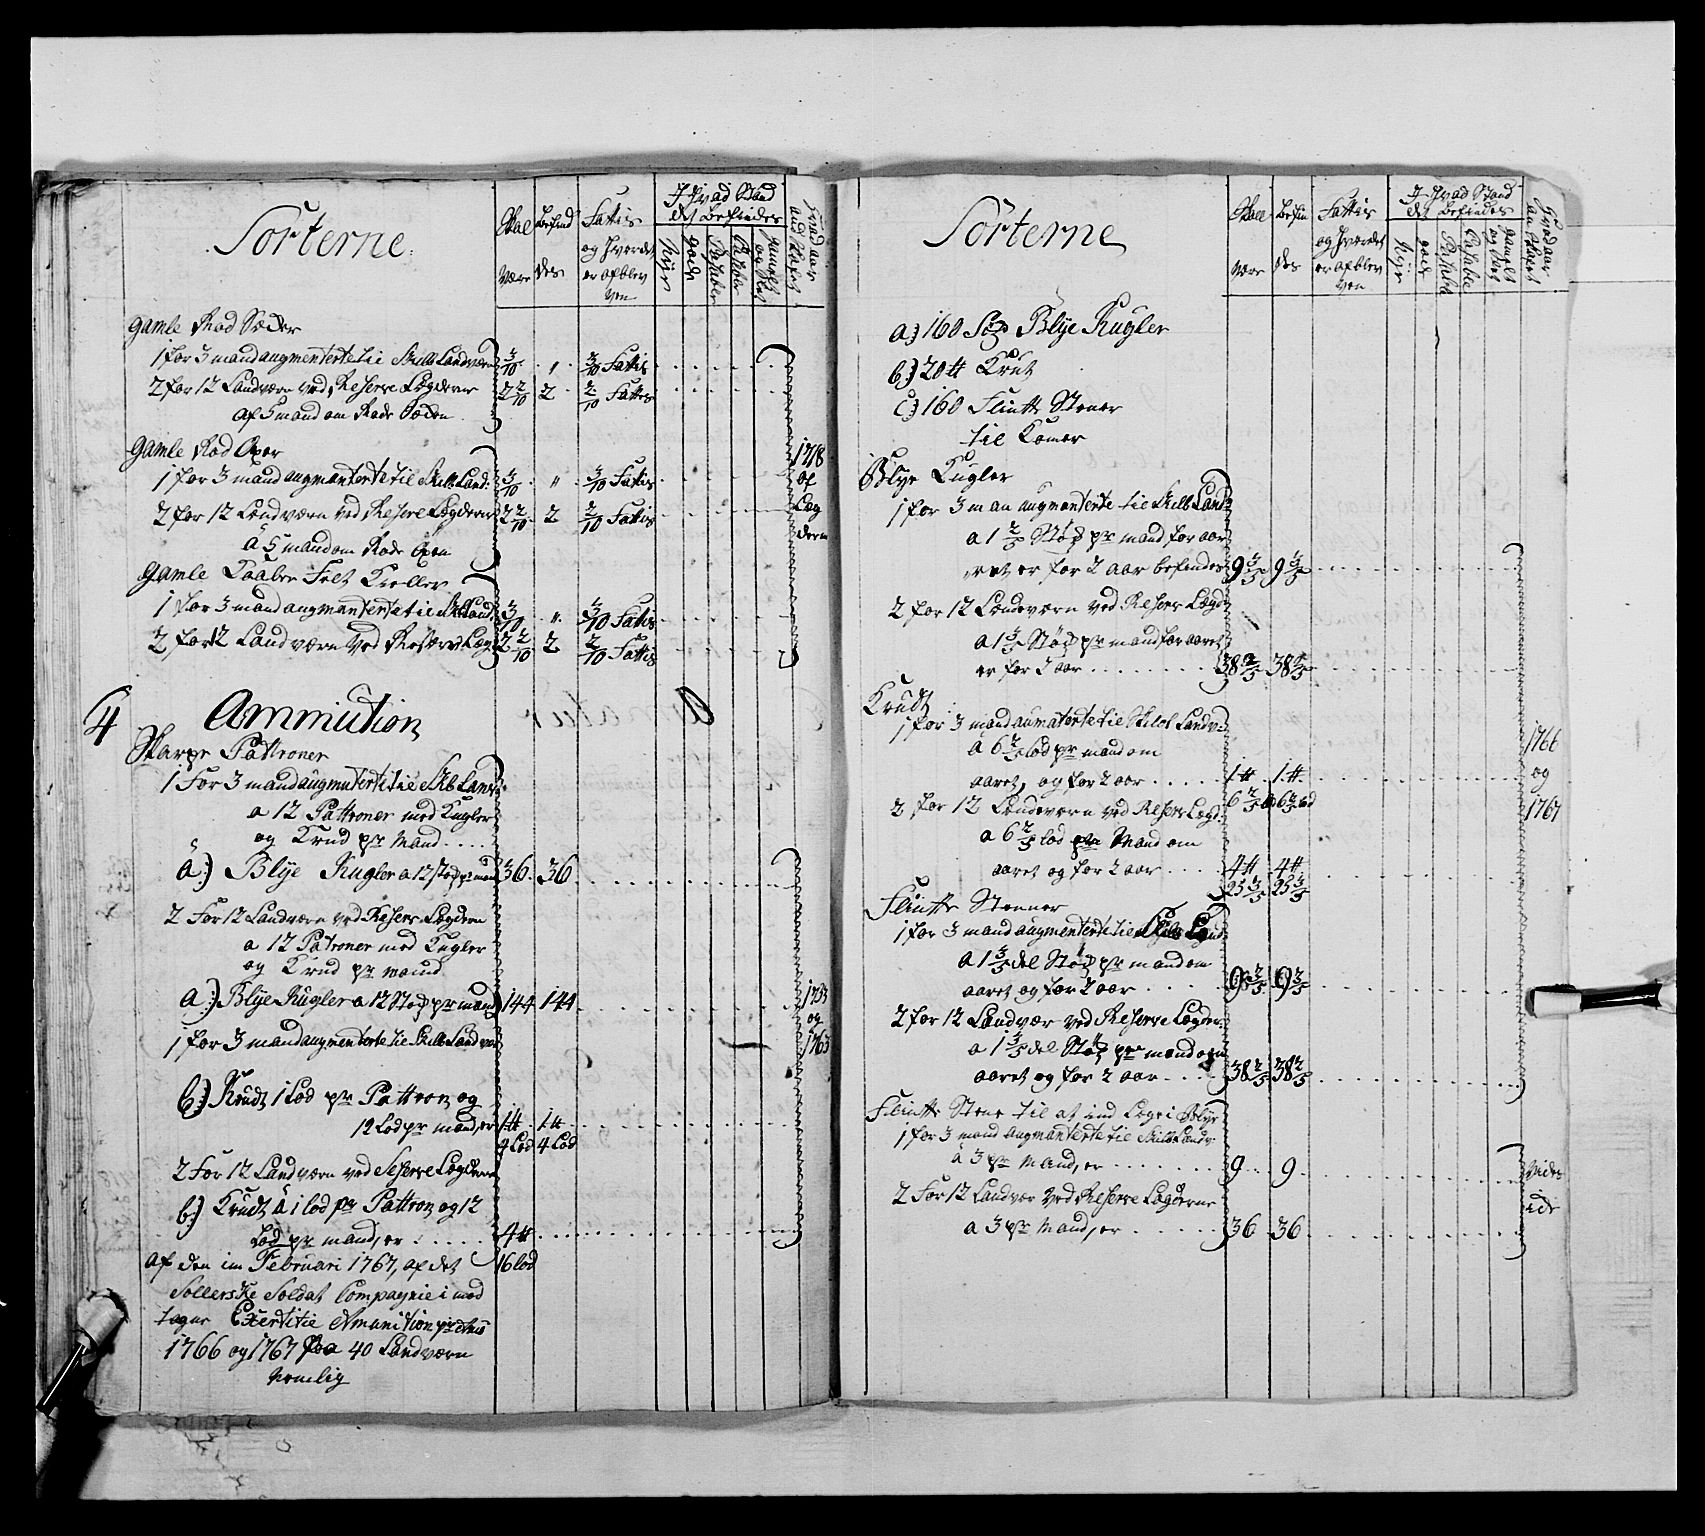 Sorterne
Skal
være
Befind
des
Fattis
og hvordet
er afblev
ven
I Hvad Stand
det befindes
Nye
gode
Pasable
gamelt
og Slet
Hvad aar
anskafet
gamle Rad Sæder
1 for 3 mand augmenterte til Skilb Landværn 3/10 " 3/10 Fattis
2 for 12 Landværn ved Reserve Lægderne 2 2/10 2 2/10 Fattes
af 5 mand om Rade
gamle Rad Øxer
1 for 3 mand augmenterte til Skilb Land: 3/10 " 3/10 Fattis
2 for 12 Landværn ved Reserve Lægderne 2 2/10 2 2/10 Fattis
a 5 mand om Rade Øxen
1718
af
Læg
derne
Gamle Kaaber Felt Kieller
1 for 3 mand augmenterte til Skilb Land: 3/10 " 3/10 Fattis
2 for 12 Landværn ved Reserve Læg 2 2/10 2 2/10 Fattis
4 Ammiution
Skarpe Pattroner
1 For 3 mand augmenterte til Skilb Landv
a 12 Pattroner med Kugler
og Krud pr Mand
a) Blye Kugler a 12 stod pr mand 36 36
2 For 12 Landværn ved Reserv Lægdern
a 12 Patroner med Kugler
og Krud pr mand
a) Blye Kugler a 12 Stod pr mand 144 144
1733
og
1763
1 for 3 mand augmenterte til Skilb Landvæ
b) Krudt 1 Lod pr Pattron og
12 Lod pr mand, er 1 ℔ 1 ℔
4 Lod 4 Lod
2 For 12 Landværn ved Reserve Lægderne
b) Krudt a 1 lod pr Pattron og 12
Lod pr mand, er 4 ℔
16 lod
Af den im Februari 1767, af det
Sollerske Soldat Compagnie i mod
tagne Exertitie Amunition pr Anno
1766 og 1767 for 40 Landværn
nemlig
Sorterne
Skal
være
Befin
des
Fattis
og hvordet
er afblev
ven
I Hvad Stand
det befindes
Nye
gode
Pasable
gamelt
og Slet
Hvad aar
anskafet
a) 160 Stod Blye Kugler
b) 20 ℔ Krut
c) 160 Flintte Stener
til Kommer
Blye Kugler
1 for 3 man augmenterte til Skilb Land
a 1 3/5 Stod pr mand for aar
ret er for 2 aar befindes 9 3/5 9 3/5
2 for 12 Landværn ved Reserv Lægd
a 1 3/5 Stod pr mand for aaret
er for 2 aar 38 2/5 38 2/5
Krudt
1 for 3 mand aumaterte til Skilb Landv:
a 6 2/5 Lod pr mand om
aaret, og for 2 aar 1 ℔ 1 ℔
6 2/5 6 2/5
1766
og
1767
2 for 12 Landeværn ved Reserv Lægd:
a 6 2/5 lod pr Mand om
aaret og for 2 aar 4 ℔ 4 ℔
25 3/5 25 3/5
Flintte Stenner
1 for 3 mand augmenterte til Skilb Land
a 1 3/5 del Stod pr mand om
aaret og for 2 aar 9 3/5 9 3/5
2 for 12 Landvær ved Reserve Lægder:
a 1 3/5 del Stod pr mand om
aaret og for 2 aar 38 2/5 38 2/5
Flintte Stene til at ind Lege i Blye
1 for 3 mand augmenterte til Skilb Landv
a 3 pr Mand, er 9 9
2 For 12 Landvær ved Reserve Lægderne
a 3 pr Mand, er 36 36